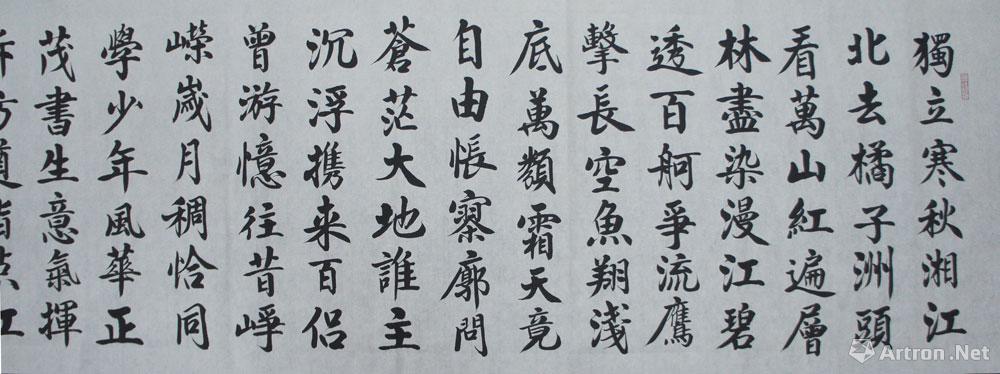 獨立寒秋湘江
北去橘子洲頭
看萬山紅遍層
林盡染漫江碧
透百舸爭流鷹
擊長空魚翔淺
底萬類霜天竟
自由悵寥廓問
蒼茫大地誰主
沉浮携来百侣
曾游憶往昔崢
嶸嵗月稠恰同
學少年風華正
茂書生意氣揮
方遒指点江
Artron.Net